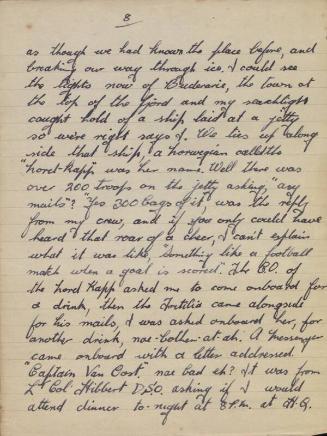 8
as though we had known the place before, and
breaking our way through ice. I could see
the lights now of Buderarie, the town at
the top of the fjord and my searchlight
caught hold of a ship laid at a jetty
so were right says I. We ties up along
side that ship, a norwegian called the
"Nord Kapp" was her name. Well there was
over 200 troops on the jetty asking, "any
mails"? "Yes 300 bags of it" was the reply
from my crew, and if you only could have
heard that roar of a cheer, I can't explain
what it was like, "Something like a football
match when a goal is scored. The C.O. of
the Nord Kapp asked me to come onboard for
a drink, then the came alongside
for his mails, I was asked onboard her, for
another drink, nae-bother-at-ah. A messenger
came onboard with a letter addressed.
"Captain Van Cort." nae bad eh? It was from
Lt Col Hibbert D.S.O. asking if I would
attend dinner to-night at 8 P.M. at H.Q.